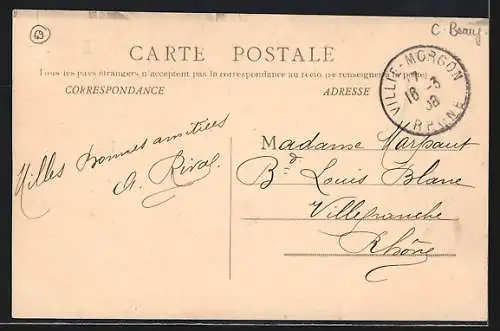 69
C. Beauj.
CARTE POSTALE
Tous les pays étrangers n'acceptent pas la correspondance au recto (se renseigner à la poste)
CORRESPONDANCE
ADRESSE
VILLIE-MORGON
18 -3
08
RHONE
Milles bonnes amitiées
A. Rival
Madame Marpaut
Bd Louis Blanc
Villefranche
Rhône